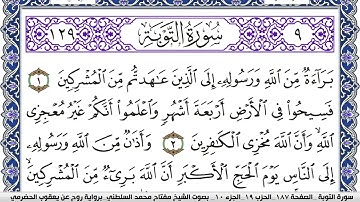 ٩ سُورَةُ التَّوْبَةِ ١٢٩
بَرَآءَةٌ مِّنَ ٱللَّهِ وَرَسُولِهِۦٓ إِلَى ٱلَّذِينَ عَٰهَدتُّم مِّنَ ٱلْمُشْرِكِينَ ١
فَسِيحُوا۟ فِى ٱلْأَرْضِ أَرْبَعَةَ أَشْهُرٍ وَٱعْلَمُوٓا۟ أَنَّكُمْ غَيْرُ مُعْجِزِى
ٱللَّهِ وَأَنَّ ٱللَّهَ مُخْزِى ٱلْكَٰفِرِينَ ٢ وَأَذَٰنٌ مِّنَ ٱللَّهِ وَرَسُولِهِۦٓ
إِلَى ٱلنَّاسِ يَوْمَ ٱلْحَجِّ ٱلْأَكْبَرِ أَنَّ ٱللَّهَ بَرِىٓءٌ مِّنَ ٱلْمُشْرِكِينَ
سورة التوبة الصفحة ١٨٧ الحزب ١٩ الجزء ١٠ بصوت الشيخ مفتاح محمد السلطني برواية روح عن يعقوب الحضرمي